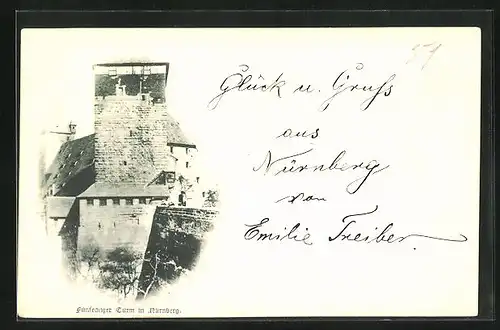 57
Glück u. Gruss
aus
Nürnberg
von
Emilie Treiber
Fünfeckiger Turm in Nürnberg.